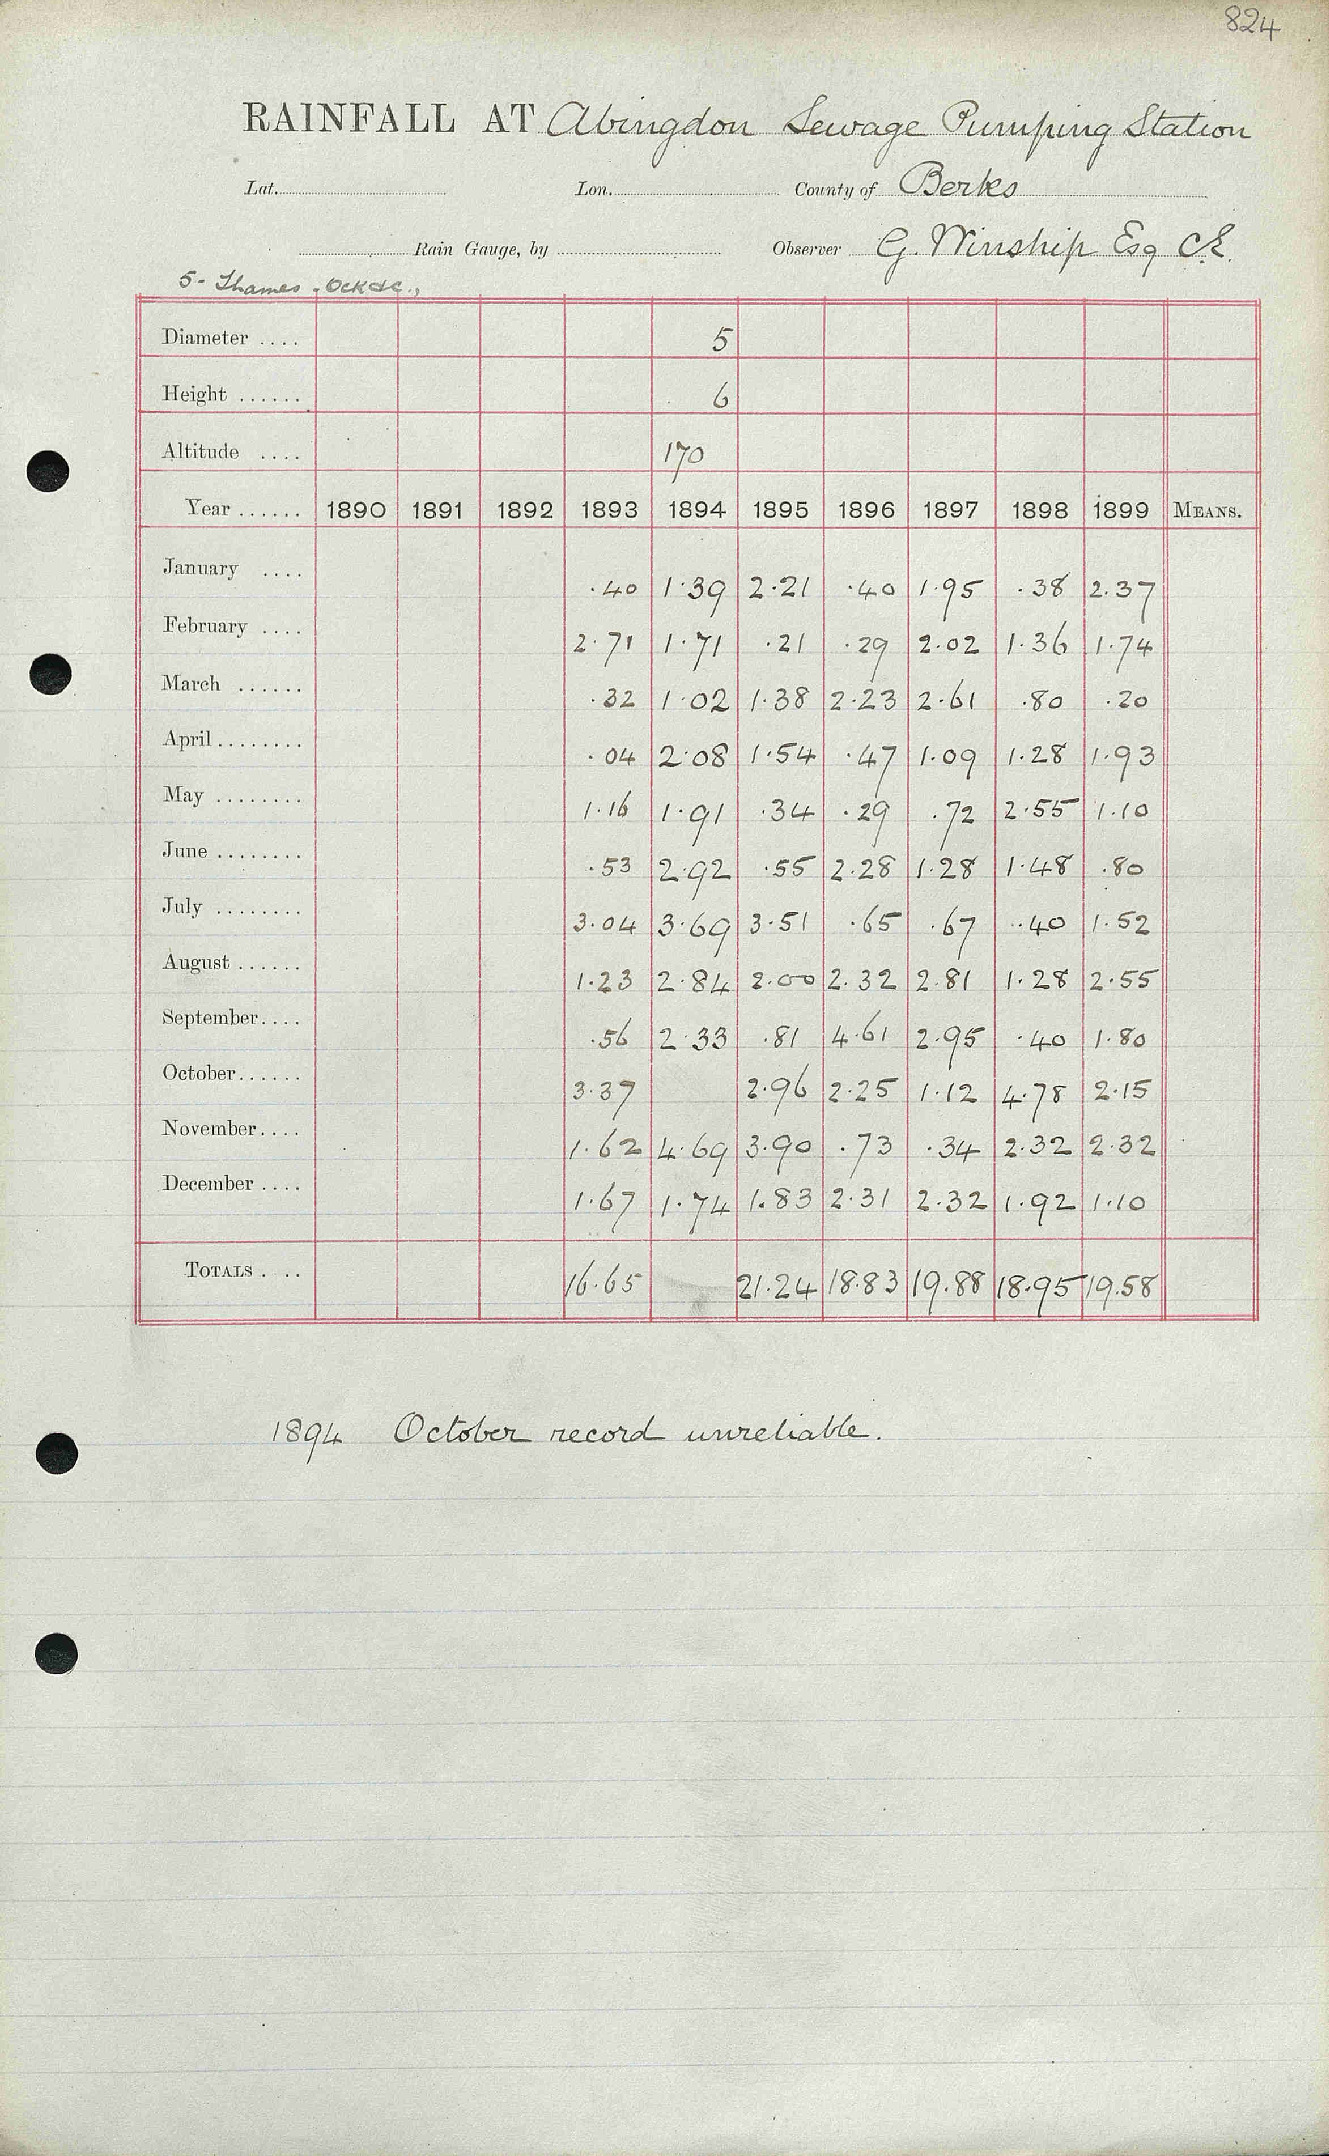 824
RAINFALL AT Abingdon Sewage Pumping Station
Lat. Lon. County of Berks
Rain Gauge, by Observer G. Winship Esq C.E.
5- Thames, Ock &c.,
Diameter .... 5
Height ...... 6
Altitude .... 170
Year ...... 1890 1891 1892 1893 1894 1895 1896 1897 1898 1899 MEANS.
January .... .40 1.39 2.21 .40 1.95 .38 2.37
February .... 2.71 1.71 .21 .29 2.02 1.36 1.74
March ...... .32 1.02 1.38 2.23 2.61 .80 .20
April ........ .04 2.08 1.54 .47 1.09 1.28 1.93
May ........ 1.16 1.91 .34 .29 .72 2.55 1.10
June ........ .53 2.92 .55 2.28 1.28 1.48 .80
July ........ 3.04 3.69 3.51 .65 .67 .40 1.52
August ...... 1.23 2.84 2.00 2.32 2.81 1.28 2.55
September .... .56 2.33 .81 4.61 2.95 .40 1.80
October ...... 3.37 2.96 2.25 1.12 4.78 2.15
November .... 1.62 4.69 3.90 .73 .34 2.32 2.32
December .... 1.67 1.74 1.83 2.31 2.32 1.92 1.10
TOTALS . .. 16.65 21.24 18.83 19.88 18.95 19.58
1894 October record unreliable.